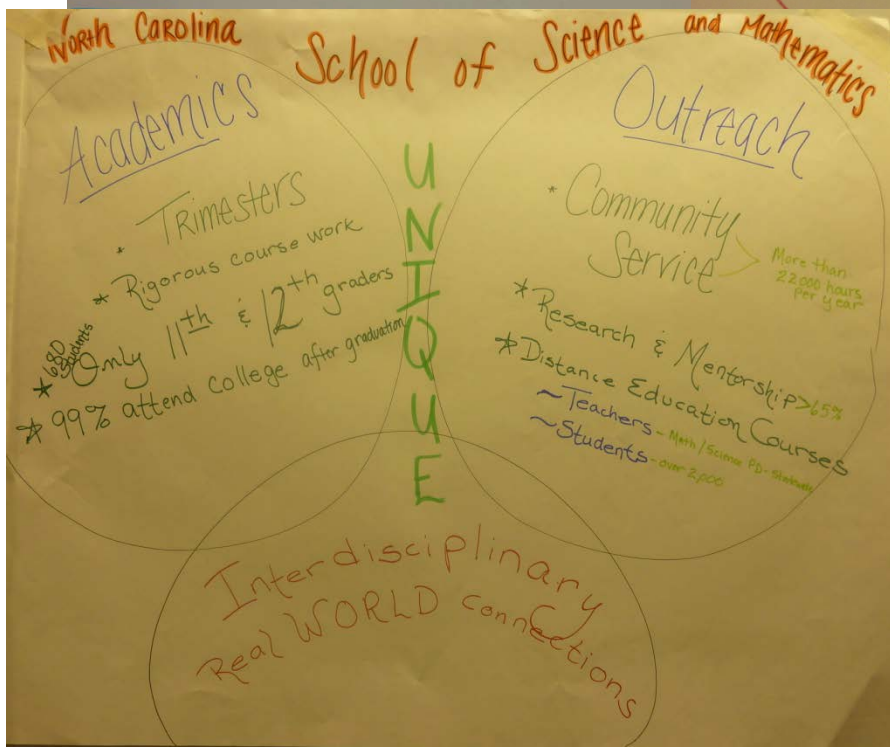 North Carolina School of Science and Mathematics
Academics
* Trimesters
* Rigorous course work
* 680 Students
Only 11th & 12th graders
* 99% attend college after graduation
UNIQUE
Outreach
* Community
Service
More than
22000 hours
per year
* Research & Mentorship >65%
* Distance Education Courses
~Teachers - Math/Science PD - Statewide
~Students - over 2,000
Interdisciplinary
Real WORLD connections